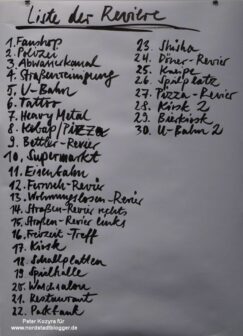 Liste der Reviere
1. Fanshop
2. Polizei
3. Abwasserkanal
4. Straßenreinigung
5. U-Bahn
6. Tattoo
7. Heavy Metal
8. Kebap/Pizza
9. Bettler-Revier
10. Supermarkt
11. Eisenbahn
12. Fernseh-Revier
13. Wohnungslosen-Revier
14. Straßen-Revier rechts
15. Straßen-Revier links
16. Freizeit-Treff
17. Kiosk
18. Schallplatten
19. Spielhalle
20. Waschsalon
21. Restaurant
22. Parkbank
23. Shisha
24. Döner-Revier
25. Kneipe
26. Spielplatz
27. Pizza-Revier
28. Kiosk 2
29. Bierkiosk
30. U-Bahn 2
Peter Kozyra für
www.nordstadtblogger.de